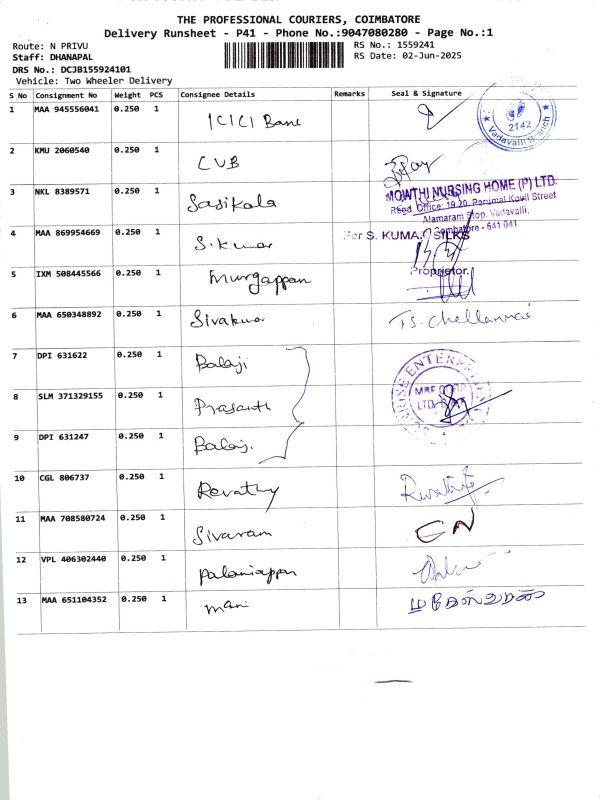 THE PROFESSIONAL COURIERS, COIMBATORE
Delivery Runsheet - P41 - Phone No.:9047080280 - Page No.:1
Route: N PRIVU
Staff: DHANAPAL
RS No.: 1559241
RS Date: 02-Jun-2025
DRS No.: DCJB155924101
Vehicle: Two Wheeler Delivery
S No Consignment No Weight PCS Consignee Details Remarks Seal & Signature
1 MAA 945556041 0.250 1 ICICI Bank
2142
Vadavalli Branch
2 KMU 2060540 0.250 1 CUB
3 NKL 8389571 0.250 1 Sasikala
MOWTHI NURSING HOME (P) LTD.
Regd. Office: 19,20, Perumal Kovil Street
Alamaram Stop, Vadavalli,
Coimbatore - 641 041
4 MAA 869954669 0.250 1 S. Kumar
For S. KUMAR SILKS
Proprietor.
5 IXM 508445566 0.250 1 Murgappan
6 MAA 650348892 0.250 1 Sivakumar T.S. Chellammai
7 DPI 631622 0.250 1 Balaji
8 SLM 371329155 0.250 1 Prasanth
9 DPI 631247 0.250 1 Balaji
10 CGL 806737 0.250 1 Revathy
11 MAA 708580724 0.250 1 Sivaram
12 VPL 406302440 0.250 1 Palaniappan
13 MAA 651104352 0.250 1 Mani மகேஸ்வரன்